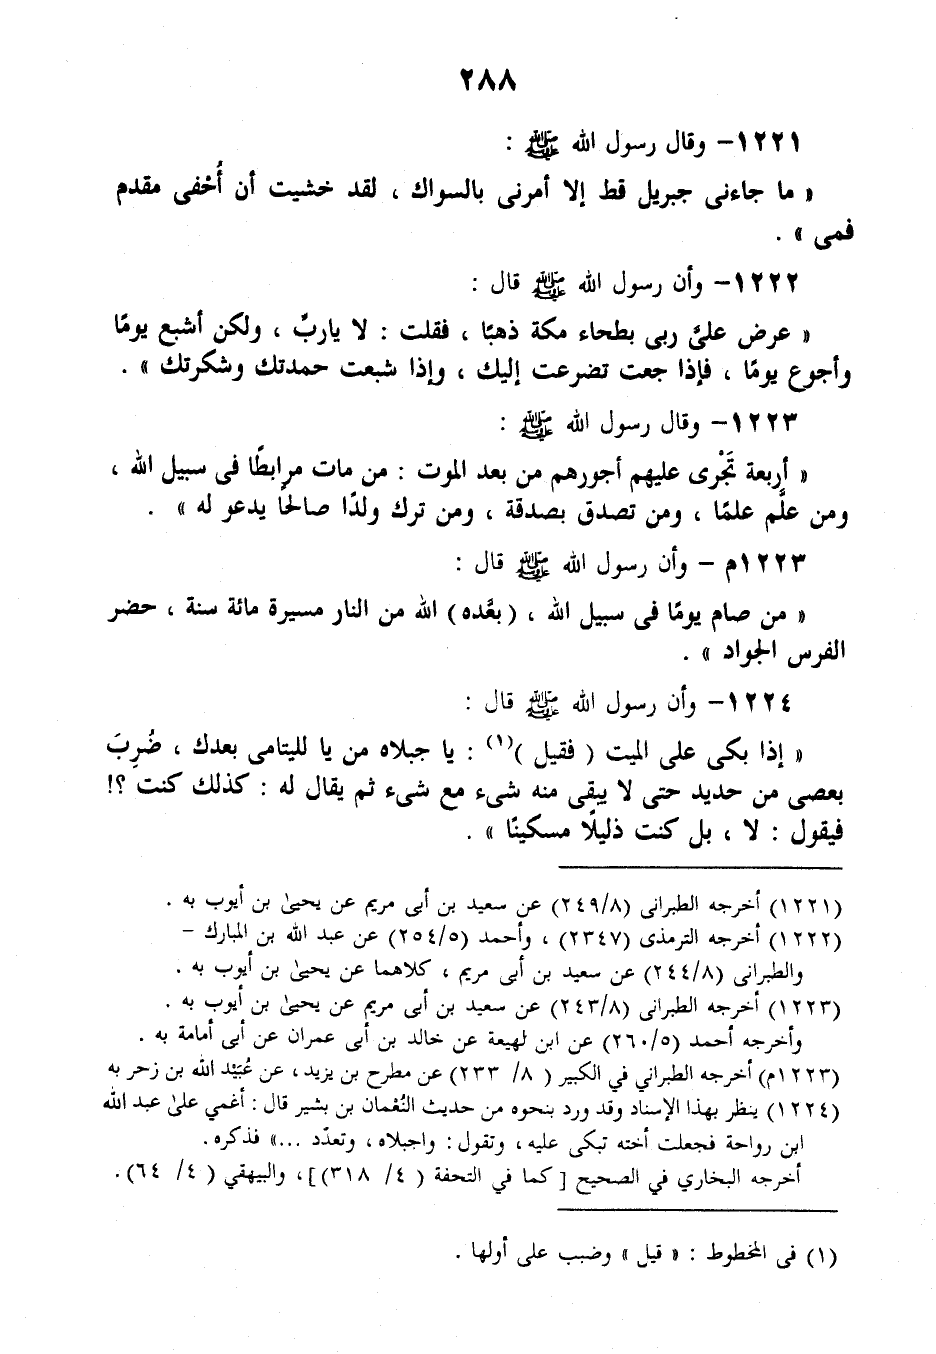 ٢٨٨
١٢٢١- وقال رسول الله ﷺ :
« ما جاءنى جبريل قط إلا أمرنى بالسواك ، لقد خشيت أن أُحْفى مقدم
فمى » .
١٢٢٢- وأن رسول الله ﷺ قال :
« عرض علىَّ ربى بطحاء مكة ذهبًا ، فقلت : لا ياربِّ ، ولكن أشبع يومًا
وأجوع يومًا ، فإذا جعت تضرعت إليك ، وإذا شبعت حمدتك وشكرتك » .
١٢٢٣- وقال رسول الله ﷺ :
« أربعة تَجْرى عليهم أجورهم من بعد الموت : من مات مرابطًا فى سبيل الله ،
ومن علَّم علمًا ، ومن تصدق بصدقة ، ومن ترك ولدًا صالحًا يدعو له » .
١٢٢٣م - وأن رسول الله ﷺ قال :
« من صام يومًا فى سبيل الله ، (بعَّده) الله من النار مسيرة مائة سنة ، حضر
الفرس الجواد » .
١٢٢٤- وأن رسول الله ﷺ قال :
« إذا بكى على الميت ( فقيل )(١) : يا جبلاه من يا لليتامى بعدك ، ضُرِبَ
بعصى من حديد حتى لا يبقى منه شىء مع شىء ثم يقال له : كذلك كنت ؟!
فيقول : لا ، بل كنت ذليلًا مسكينًا » .
(١٢٢١) أخرجه الطبرانى (٢٤٩/٨) عن سعيد بن أبى مريم عن يحيىٰ بن أيوب به .
(١٢٢٢) أخرجه الترمذى (٢٣٤٧) ، وأحمد (٢٥٤/٥) عن عبد الله بن المبارك -
والطبرانى (٢٤٤/٨) عن سعيد بن أبى مريم ، كلاهما عن يحيىٰ بن أيوب به .
(١٢٢٣) أخرجه الطبرانى (٢٤٣/٨) عن سعيد بن أبى مريم عن يحيىٰ بن أيوب به .
وأخرجه أحمد (٢٦٠/٥) عن ابن لهيعة عن خالد بن أبى عمران عن أبى أمامة به .
(١٢٢٣م) أخرجه الطبراني في الكبير ( ٨/ ٢٣٣) عن مطرح بن يزيد ، عن عُبَيْد الله بن زحر به
(١٢٢٤) ينظر بهذا الإسناد وقد ورد بنحوه من حديث النُعْمان بن بشير قال : أغمي علىٰ عبد الله
ابن رواحة فجعلت أخته تبكى عليه ، وتقول : واجبلاه ، وتعدّد ...» فذكره.
أخرجه البخاري في الصحيح [ كما في التحفة ( ٤/ ٣١٨)] ، والبيهقي ( ٤/ ٦٤) .
(١) فى المخطوط : « قيل » وضبب على أولها .